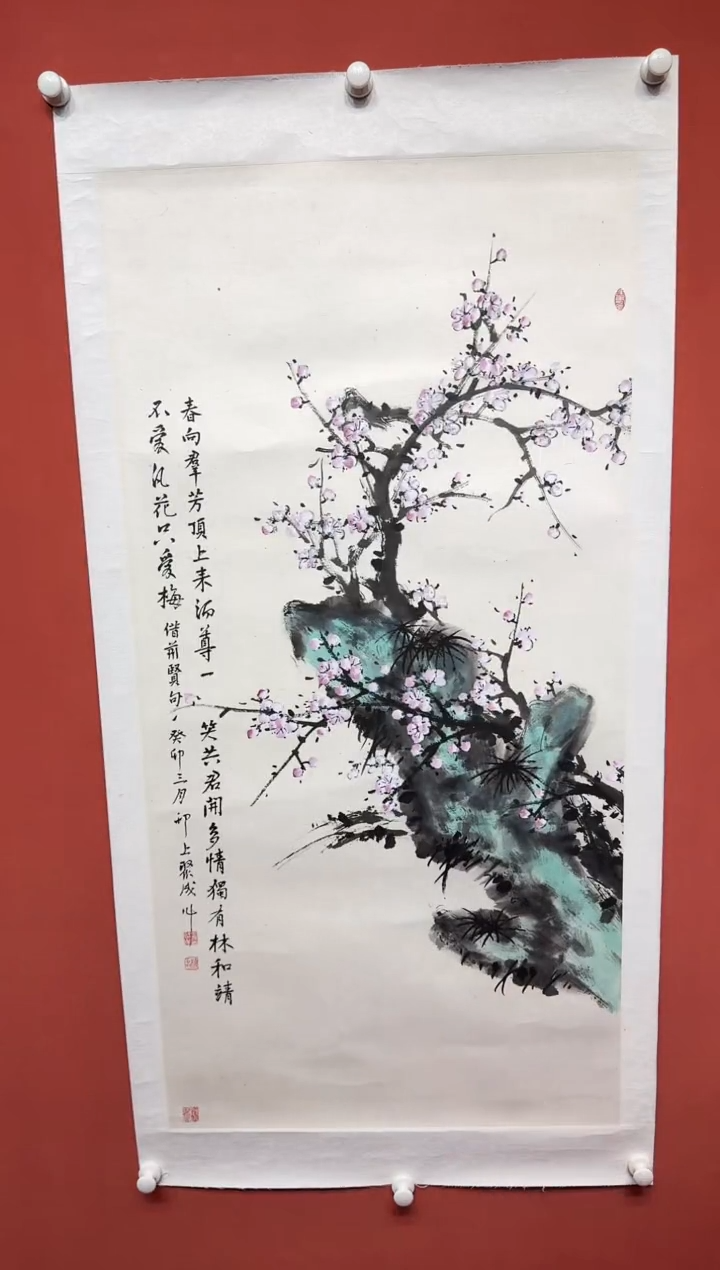 春向羣芳頂上来酒尊一笑共君開多情獨有林和靖
不愛凡花只愛梅 借前賢句 癸卯三月邗上聚成作